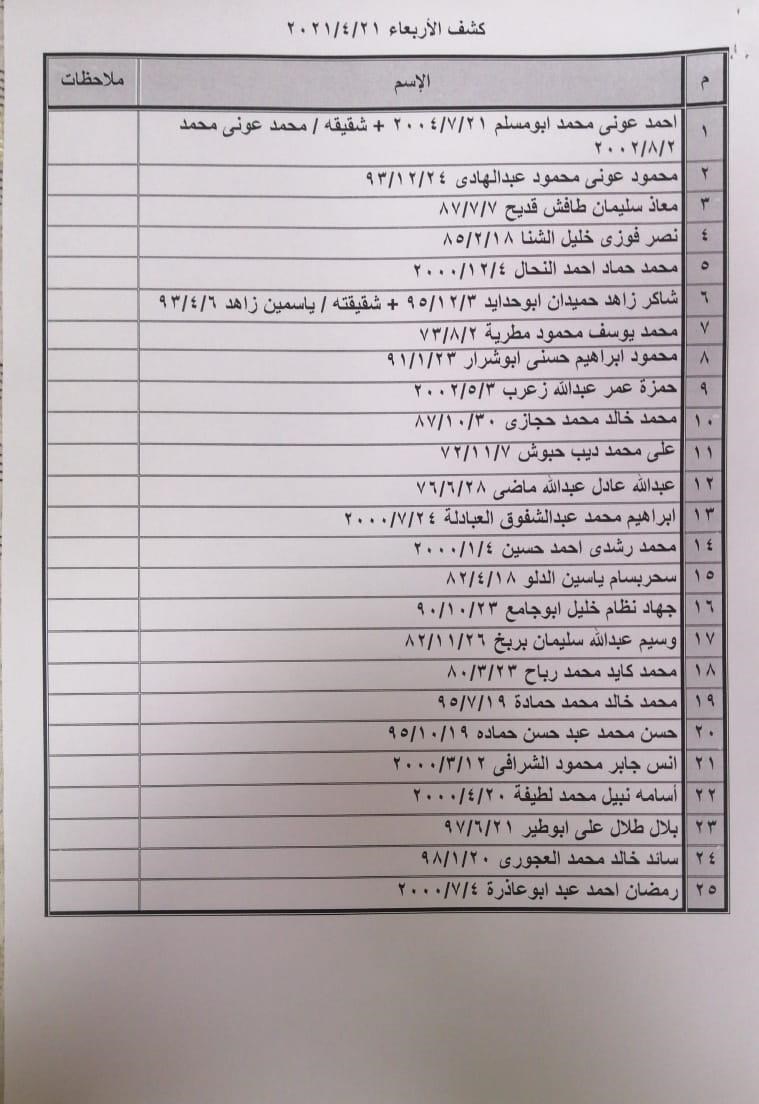 كشف الأربعاء ٢٠٢١/٤/٢١
م الإسم ملاحظات
١ احمد عونى محمد ابومسلم ٢٠٠٤/٧/٢١ + شقيقه / محمد عونى محمد
٢٠٠٢/٨/٢
٢ محمود عونى محمود عبدالهادى ٩٣/١٢/٢٤
٣ معاذ سليمان طافش قديح ٨٧/٧/٧
٤ نصر فوزى خليل الشنا ٨٥/٢/١٨
٥ محمد حماد احمد النحال ٢٠٠٠/١٢/٤
٦ شاكر زاهد حميدان ابوحدايد ٩٥/١٢/٣ + شقيقته / ياسمين زاهد ٩٣/٤/٦
٧ محمد يوسف محمود مطرية ٧٣/٨/٢
٨ محمود ابراهيم حسنى ابوشرار ٩١/١/٢٣
٩ حمزة عمر عبدالله زعرب ٢٠٠٢/٥/٣
١٠ محمد خالد محمد حجازى ٨٧/١٠/٣٠
١١ على محمد ديب حبوش ٧٢/١١/٧
١٢ عبدالله عادل عبدالله ماضى ٧٦/٦/٢٨
١٣ ابراهيم محمد عبدالشفوق العبادلة ٢٠٠٠/٧/٢٤
١٤ محمد رشدى احمد حسين ٢٠٠٠/١/٤
١٥ سحربسام ياسين الدلو ٨٢/٤/١٨
١٦ جهاد نظام خليل ابوجامع ٩٠/١٠/٢٣
١٧ وسيم عبدالله سليمان بريخ ٨٢/١١/٢٦
١٨ محمد كايد محمد رباح ٨٠/٣/٢٣
١٩ محمد خالد محمد حمادة ٩٥/٧/١٩
٢٠ حسن محمد عبد حسن حماده ٩٥/١٠/١٩
٢١ انس جابر محمود الشرافى ٢٠٠٠/٣/١٢
٢٢ أسامه نبيل محمد لطيفة ٢٠٠٠/٤/٢٠
٢٣ بلال طلال على ابوطير ٩٧/٦/٢١
٢٤ سائد خالد محمد العجورى ٩٨/١/٢٠
٢٥ رمضان احمد عبد ابوعاذرة ٢٠٠٠/٧/٤